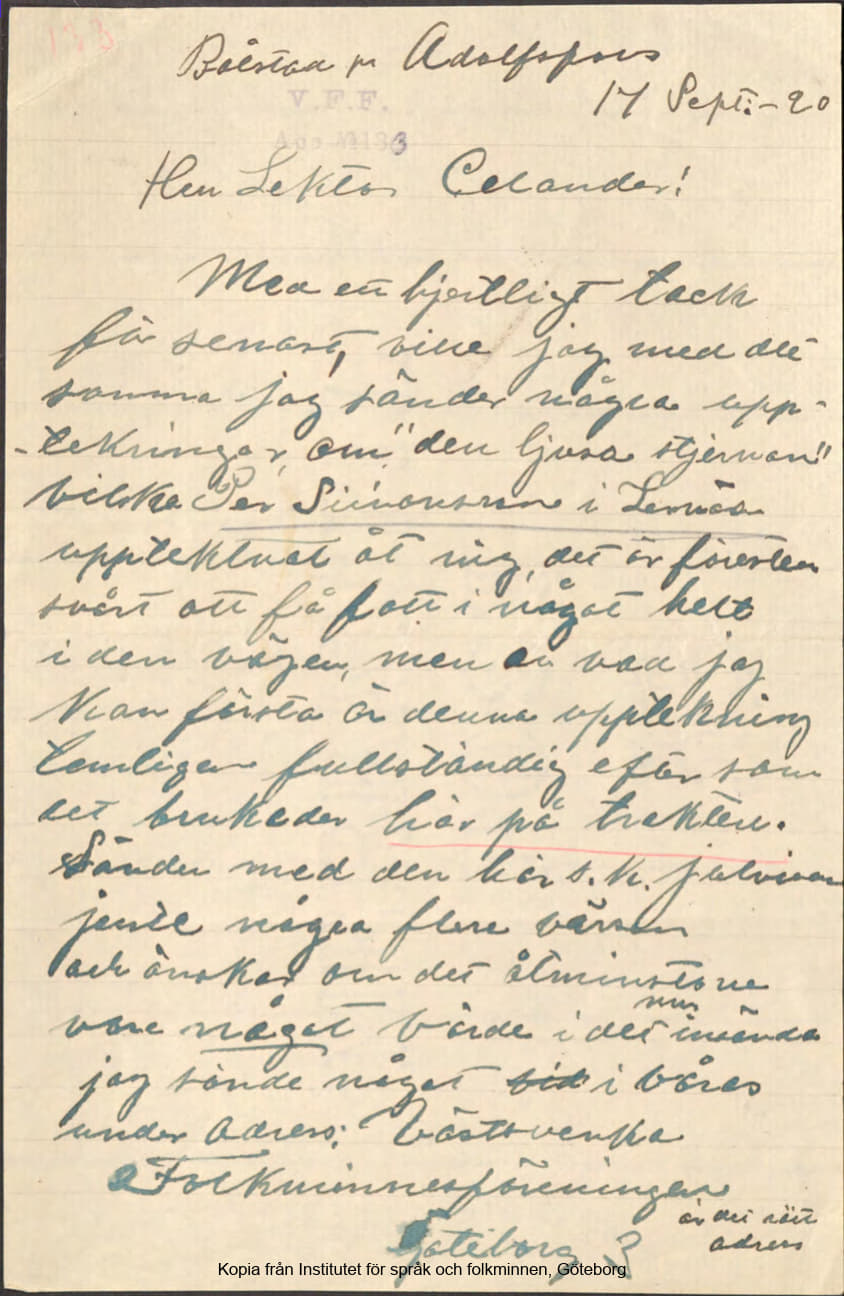 133
Bålstad pr Adolfsfors
17 Sept: - 20
V.F.F.
Acc № 133
Herr Lektor Celander!
Med ett hjertligt tack
för senast, ville jag med det
samma jag sänder några upp-
-tekningar om "den ljusa stjernan"
vilka Per Simonsson i Lernäs
uppteknat åt mig, det är föresten
svårt att få fatt i något helt
i den vägen, men av vad jag
kan första är denna upptekning
temligen fullständig efter som
det brukader här på trakten.
Sänder med den här s.k.
några flere värsen
och önskar om det åtminstone
vore något värde i det nu insända
jag sände något i våras
under adress: Västsvenska
Folkminnesföreningen
Göteborg 3
är det rätt
adress
Kopia från Institutet för språk och folkminnen, Göteborg